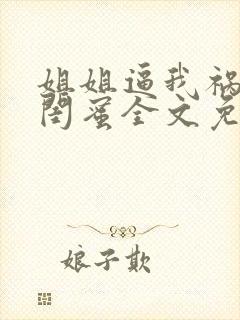 姐姐逼我祸
闺蜜全文免
娘子欺